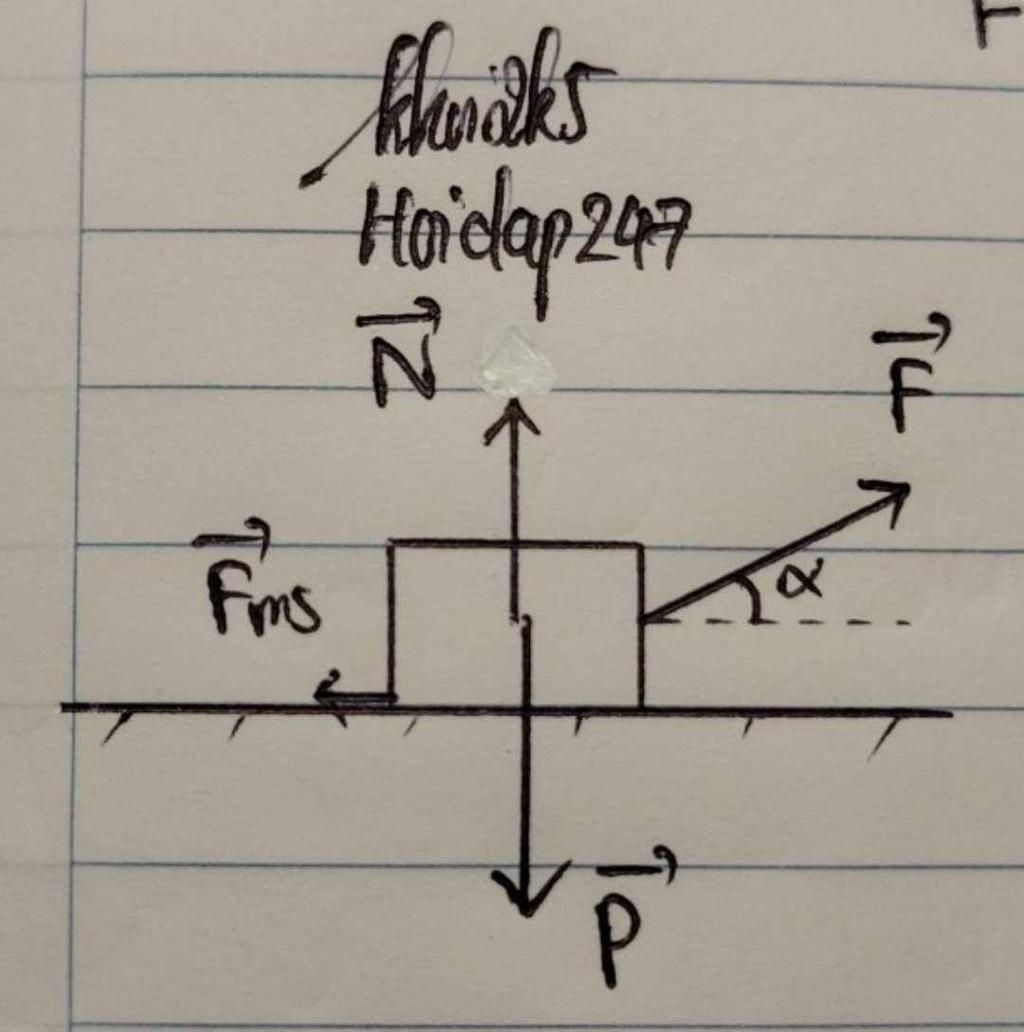 khoi2k5
Hoidap247
N
F
Fms
α
P